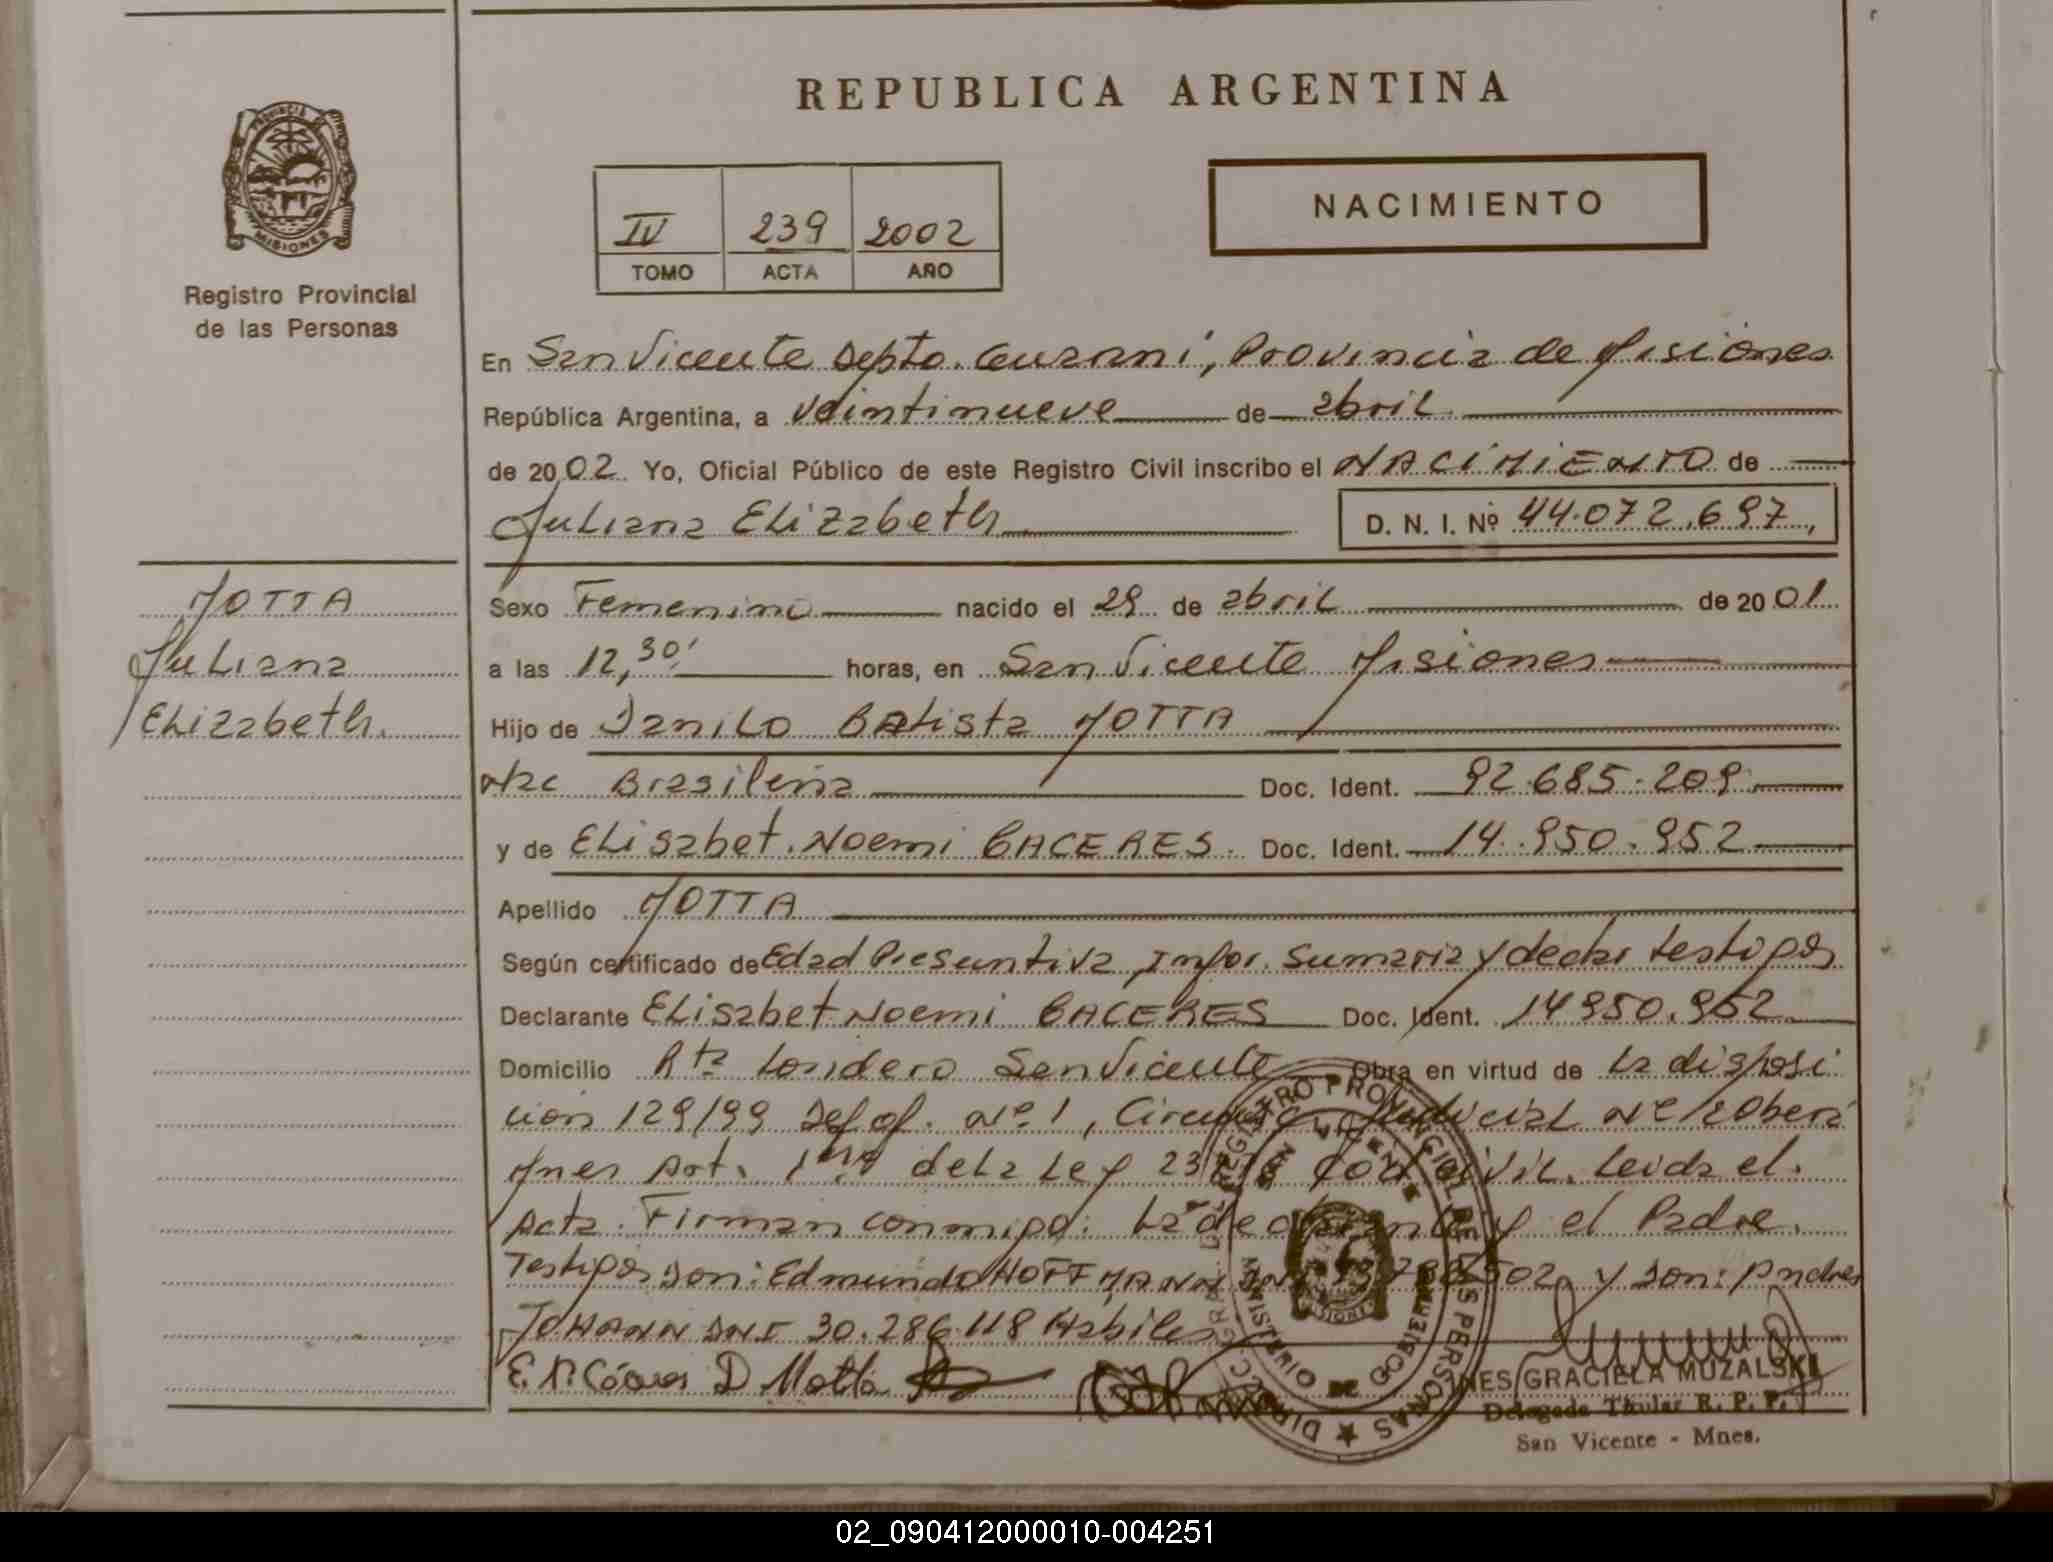 REPUBLICA ARGENTINA
PROVINCIA DE
MISIONES
Registro Provincial
de las Personas
IV 239 2002
TOMO ACTA AÑO
NACIMIENTO
En San Vicente Depto. Guarani, Provincia de Misiones
República Argentina, a veintinueve de abril
de 2002. Yo, Oficial Público de este Registro Civil inscribo el NACIMIENTO de
Juliana Elizabeth D. N. I. Nº 44.072.697,
MOTTA
Juliana
Elizabeth.
Sexo Femenino nacido el 29 de abril de 2001
a las 12,30' horas, en San Vicente Misiones
Hijo de Danilo Batista MOTTA
Nac Brasileña Doc. Ident. 92.685.209
y de Elisabet Noemi CACERES. Doc. Ident. 14.950.952
Apellido MOTTA
Según certificado de Edad Presuntiva, Infor. Sumaria y testigos
Declarante Elisabet Noemi CACERES Doc. Ident. 14950.952
Domicilio Rta Londero San Vicente Obra en virtud de la disposi
ción 129/99 Def of. Nº 1, Judicial Nº Obera
Mnes Art. de la Ley Civil. Leida el
Acta. Firman conmigo: La declarante y el Padre.
Testigos Don: Edmundo HOFFMANN y Don: Andres
JOHANN DNI 30.286.118 Habiles
E. N. Cáceres D Motta
REGISTRO PROVINCIAL DE LAS PERSONAS
SAN VICENTE
MINISTERIO DE GOBIERNO
INES GRACIELA MUZALSKI
Delegada Titular R. P. P.
San Vicente - Mnes.
02_090412000010-004251